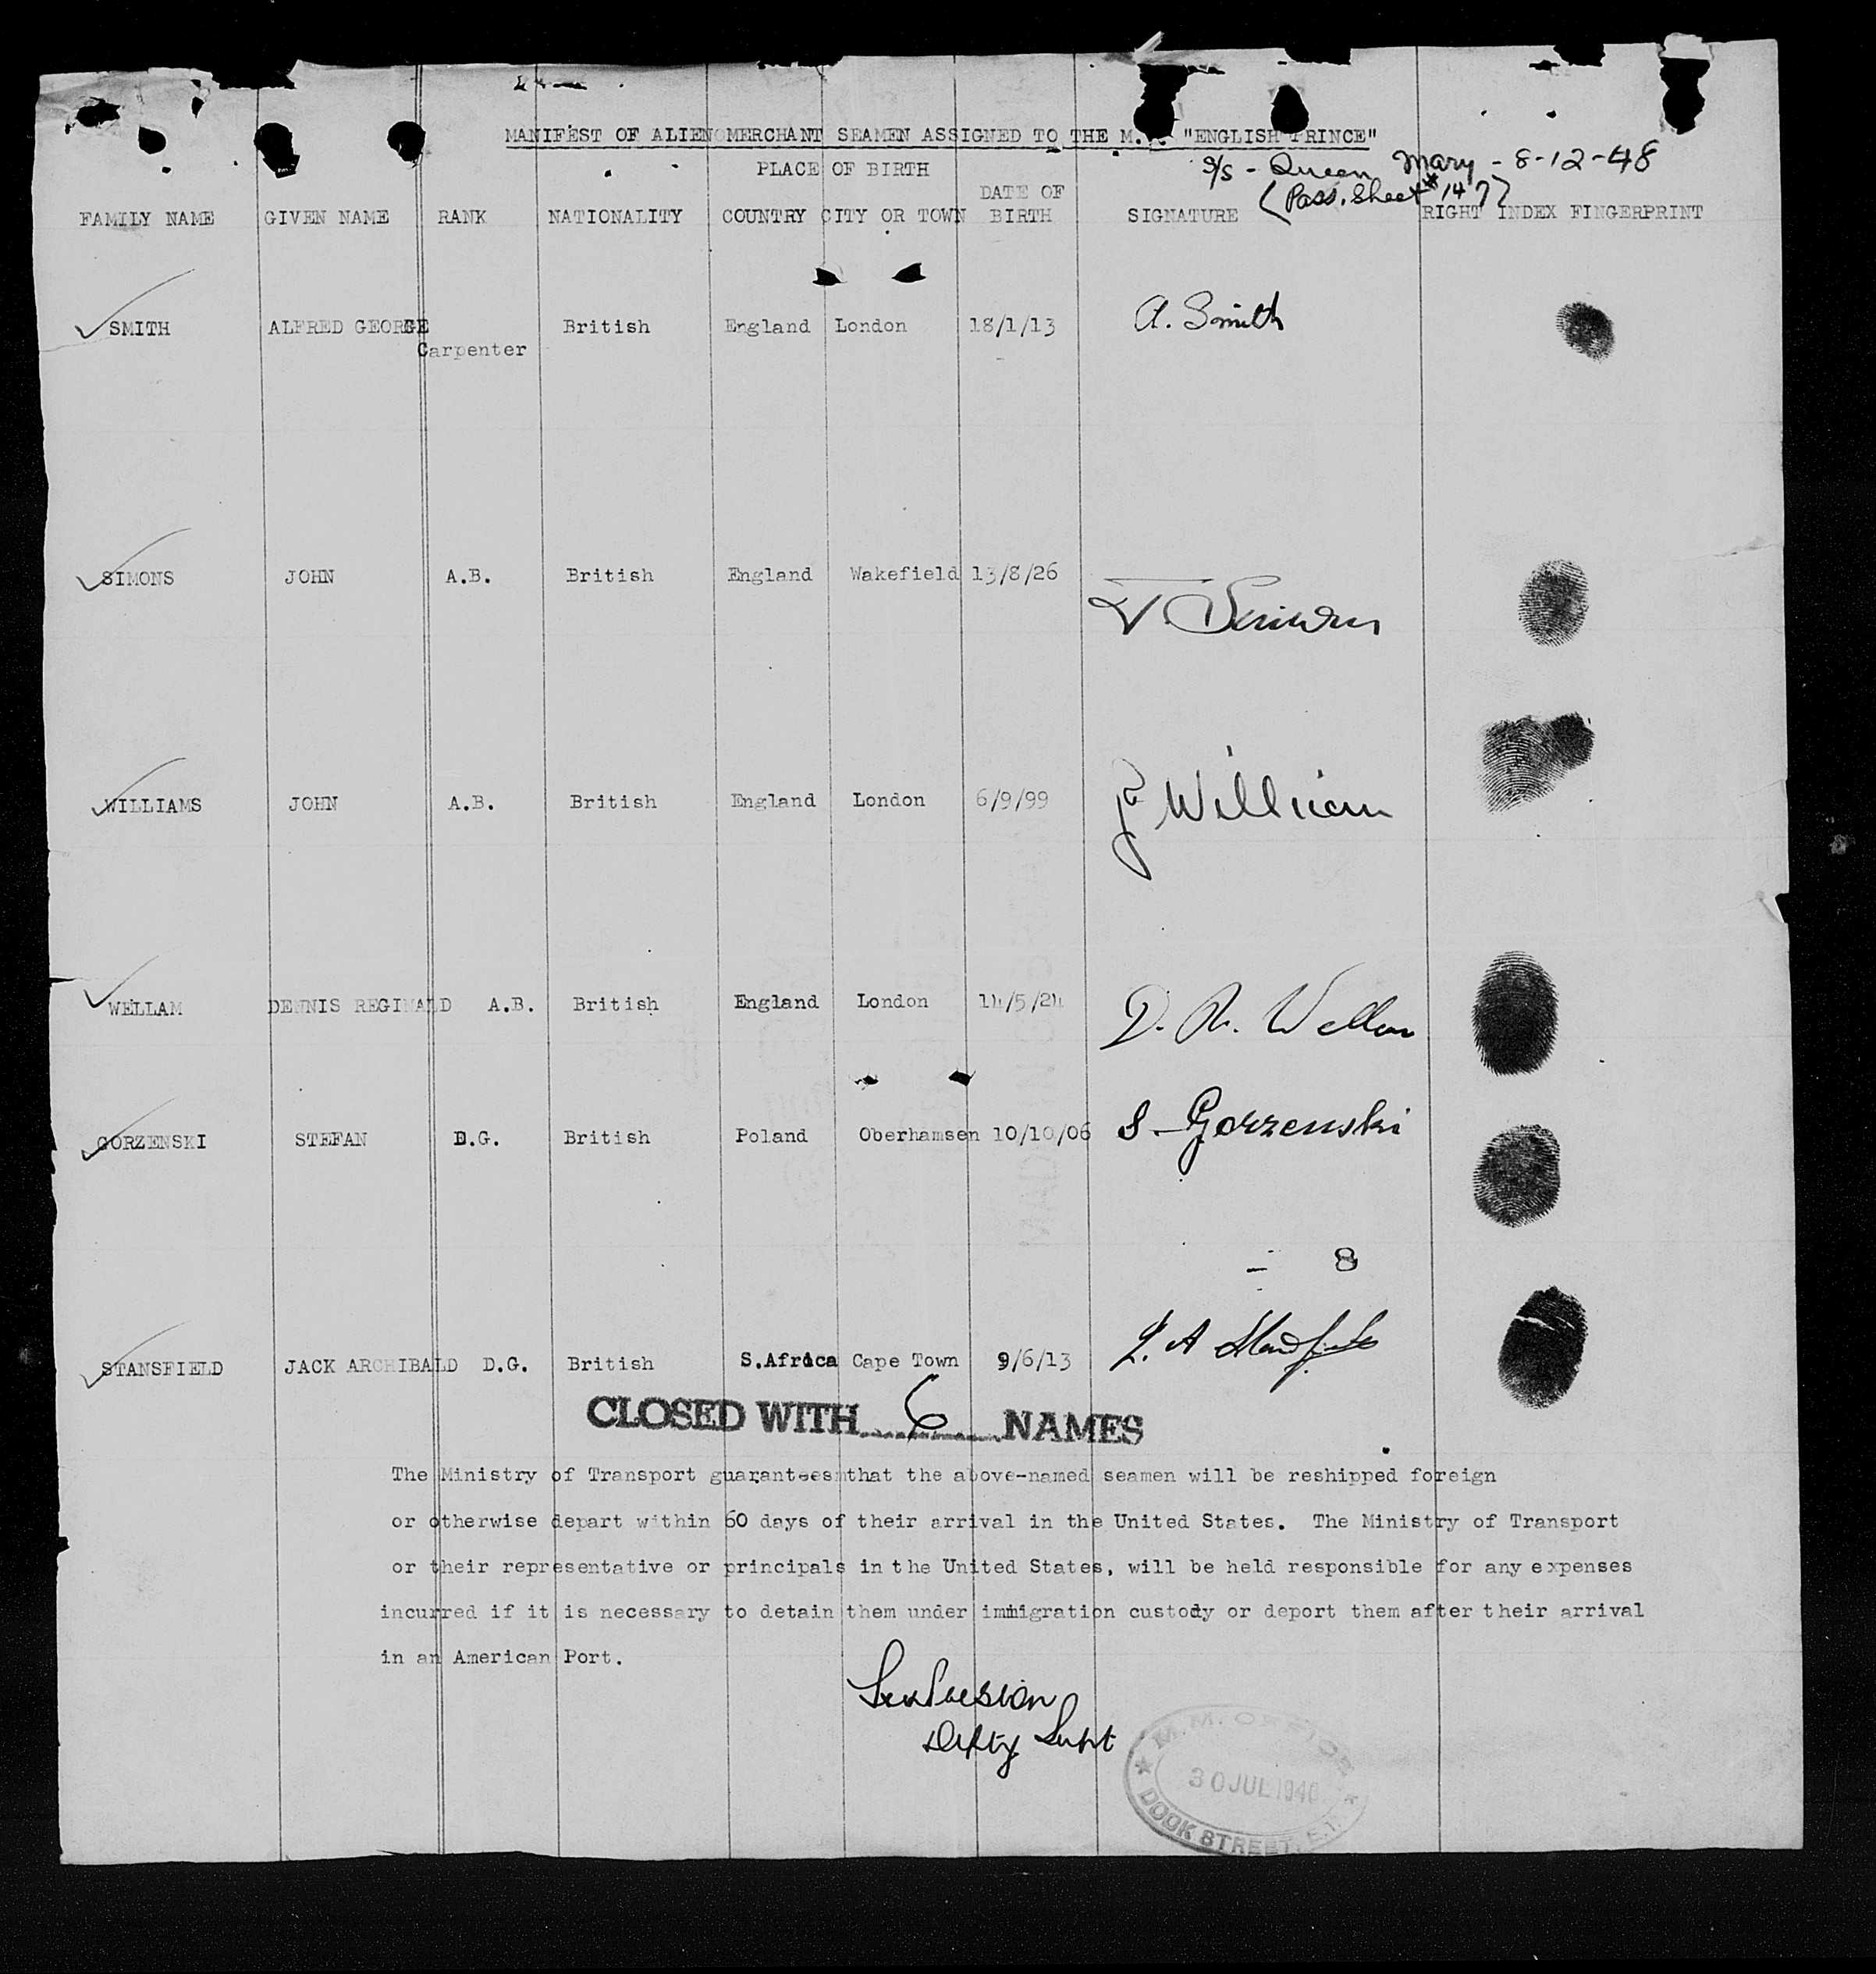 MANIFEST OF ALIEN MERCHANT SEAMEN ASSIGNED TO THE M. "ENGLISH PRINCE"
S/S - Queen Mary - 8-12-48
(Pass. Sheet # 147)
PLACE OF BIRTH
FAMILY NAME GIVEN NAME RANK NATIONALITY COUNTRY CITY OR TOWN DATE OF BIRTH SIGNATURE RIGHT INDEX FINGERPRINT
SMITH ALFRED GEORGE Carpenter British England London 18/1/13 A. Smith
SIMONS JOHN A.B. British England Wakefield 13/8/26 J. Simons
WILLIAMS JOHN A.B. British England London 6/9/99 J William
WELLAM DENNIS REGINALD A.B. British England London 14/5/24 D. R. Wellam
GORZENSKI STEFAN D.G. British Poland Oberhamsen 10/10/06 S - Gorzenski
8
STANSFIELD JACK ARCHIBALD D.G. British S.Africa Cape Town 9/6/13 J. A Stansfield
CLOSED WITH 6 NAMES
The Ministry of Transport guarantees that the above-named seamen will be reshipped foreign
or otherwise depart within 60 days of their arrival in the United States. The Ministry of Transport
or their representative or principals in the United States, will be held responsible for any expenses
incurred if it is necessary to detain them under immigration custody or deport them after their arrival
in an American Port.
Depty Supt
M.M. OFFICE
30 JUL 1948
DOCK STREET, E.1.